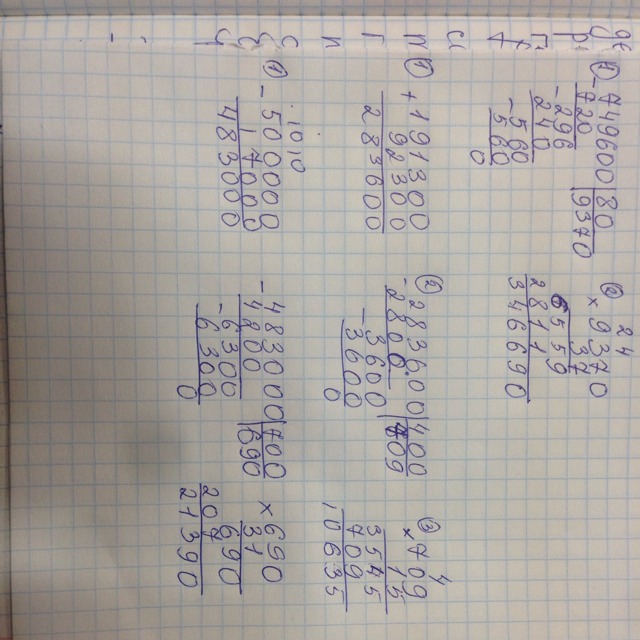 ①
- 749600 | 80
720 | 9370
- 296
240
- 560
560
0
②
2 4
× 9370
37
6559
2811
346690
①
+ 191300
92300
283600
②
- 283600 | 400
2800 | 709
- 3600
3600
0
③
4
× 709
15
3545
709
10635
①
. 10 10
- 500000
17000
483000
- 483000 | 700
4200 | 690
- 6300
6300
0
× 690
31
690
207
21390